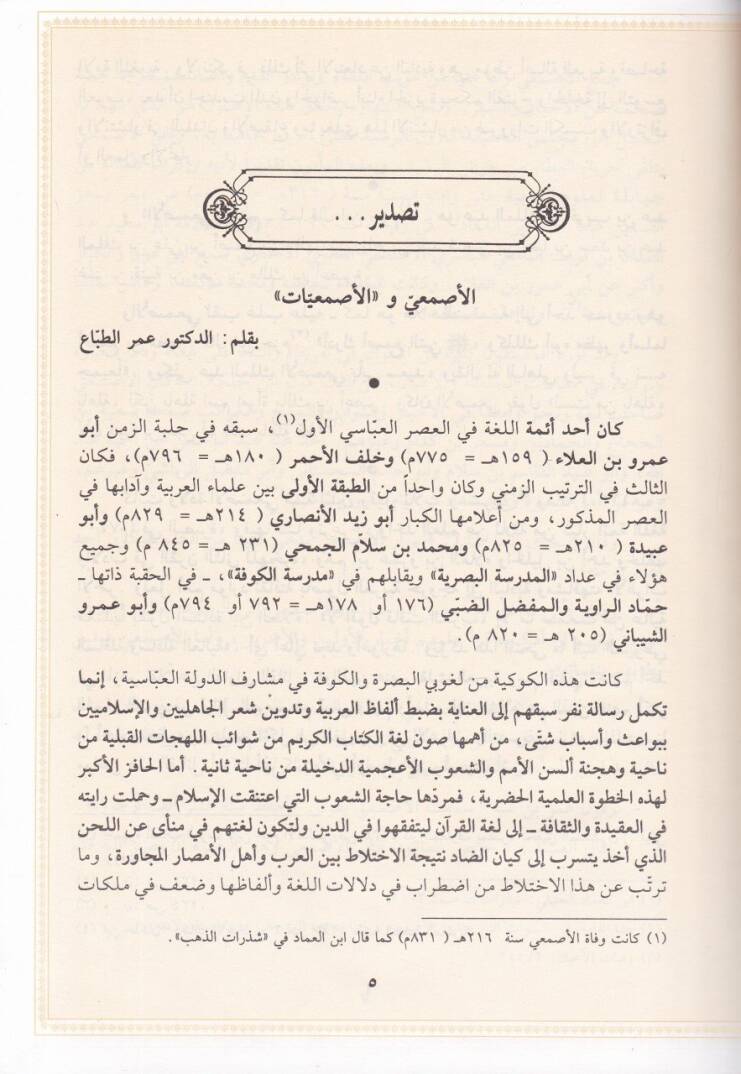 تصدير . . .
الأصمعيّ و «الأصمعيّات»
بقلم : الدكتور عمر الطبّاع
●
كان أحد أئمة اللغة في العصر العبّاسي الأول(١)، سبقه في حلبة الزمن أبو
عمرو بن العلاء ( ١٥٩هـ = ٧٧٥م) وخلف الأحمر ( ١٨٠هـ = ٧٩٦م)، فكان
الثالث في الترتيب الزمني وكان واحداً من الطبقة الأولى بين علماء العربية وآدابها في
العصر المذكور، ومن أعلامها الكبار أبو زيد الأنصاري ( ٢١٤هـ = ٨٢٩م) وأبو
عبيدة ( ٢١٠هـ = ٨٢٥م) ومحمد بن سلاّم الجمحي (٢٣١ هـ = ٨٤٥ م) وجميع
هؤلاء في عداد «المدرسة البصرية» ويقابلهم في «مدرسة الكوفة»، ـ في الحقبة ذاتها ـ
حمّاد الراوية والمفضل الضبّي (١٧٦ أو ١٧٨هـ = ٧٩٢ أو ٧٩٤م) وأبو عمرو
الشيباني (٢٠٥ هـ = ٨٢٠ م).
كانت هذه الكوكبة من لغويي البصرة والكوفة في مشارف الدولة العبّاسية، إنما
تكمل رسالة نفر سبقهم إلى العناية بضبط ألفاظ العربية وتدوين شعر الجاهليين والإسلاميين
ببواعث وأسباب شتّى، من أهمها صون لغة الكتاب الكريم من شوائب اللهجات القبلية من
ناحية وهجنة ألسن الأمم والشعوب الأعجمية الدخيلة من ناحية ثانية . أما الحافز الأكبر
لهذه الخطوة العلمية الحضرية، فمردّها حاجة الشعوب التي اعتنقت الإسلام ـ وحملت رايته
في العقيدة والثقافة ـ إلى لغة القرآن ليتفقهوا في الدين ولتكون لغتهم في منأى عن اللحن
الذي أخذ يتسرب إلى كيان الضاد نتيجة الاختلاط بين العرب وأهل الأمصار المجاورة، وما
ترتّب عن هذا الاختلاط من اضطراب في دلالات اللغة وألفاظها وضعف في ملكات
(١) كانت وفاة الأصمعي سنة ٢١٦هـ ( ٨٣١م) كما قال ابن العماد في «شذرات الذهب».
٥